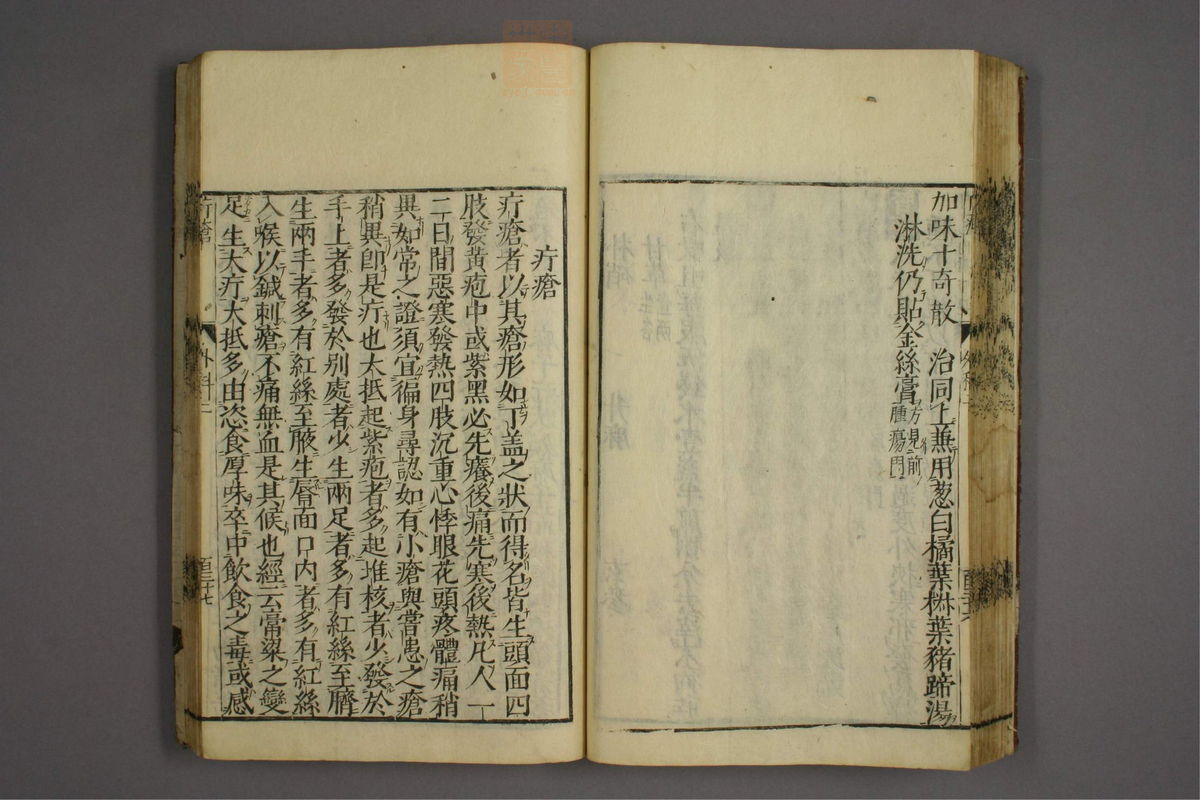 加味十奇散 治同上兼用葱白橘葉椒葉豬蹄湯
淋洗仍貼金絲膏方見前
腫瘍門
疔瘡
疔瘡者以其瘡形如丁盖之狀而得名皆生頭面四
肢發黄疱中或紫黑必先癢後痛先寒後熱凡人一
二日間惡寒發熱四肢沉重心悸眼花頭疼體痛稍
異如常之證須宜徧身尋認如有小瘡與嘗患之瘡
稍異卽是疔也大抵起紫疱者多起堆核者少發於
手上者多發於别處者少生兩足者多有紅絲至臍
生兩手者多有紅絲至腋生唇面口内者多有紅絲
入喉以鍼刺瘡不痛無血是其候也經云膏粱之變
足生大疔大抵多由恣食厚味卒中飲食之毒或感
疔瘡
外科二
百三十七